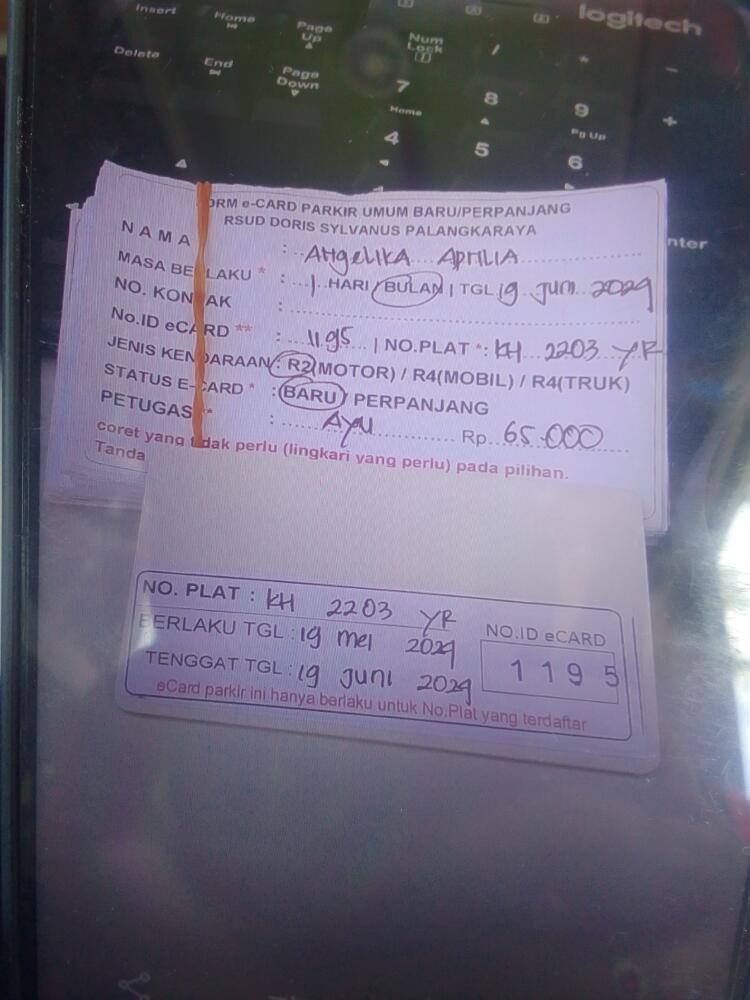 logitech
Insert Home Page Up Num Lock / * -
Delete End Page Down 7 Home 8 9 Pg Up +
4 5 6
nter
ORM e-CARD PARKIR UMUM BARU/PERPANJANG
RSUD DORIS SYLVANUS PALANGKARAYA
NAMA : ANGELIKA APRILIA
MASA BE LAKU * : 1 HARI / BULAN | TGL 19 Juni 2024
NO. KON AK :
No.ID eCARD ** : 1195 | NO.PLAT *: KH 2203 YR
JENIS KENDARAAN : R2(MOTOR) / R4(MOBIL) / R4(TRUK)
STATUS E-CARD * : BARU / PERPANJANG
PETUGAS ** : Ayu Rp. 65.000
coret yang tidak perlu (lingkari yang perlu) pada pilihan.
Tanda
NO. PLAT : KH 2203 YR
BERLAKU TGL : 19 mei 2024
TENGGAT TGL : 19 Juni 2024
NO.ID eCARD
1195
eCard parkir ini hanya berlaku untuk No.Plat yang terdaftar